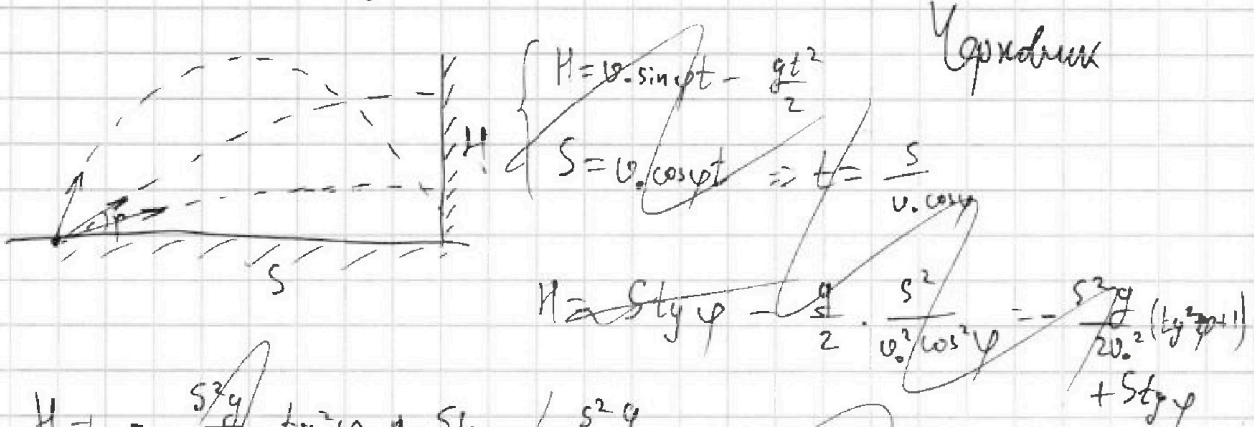 Черновик
H = v₀ sinφt - gt²/2
S = v₀ cosφt => t = S/(v₀ cosφ)
H
S
φ
H = S tgφ - g/2 · S²/(v₀² cos²φ) = - S²g/(2v₀²) (tg²φ+1)
+ S tgφ